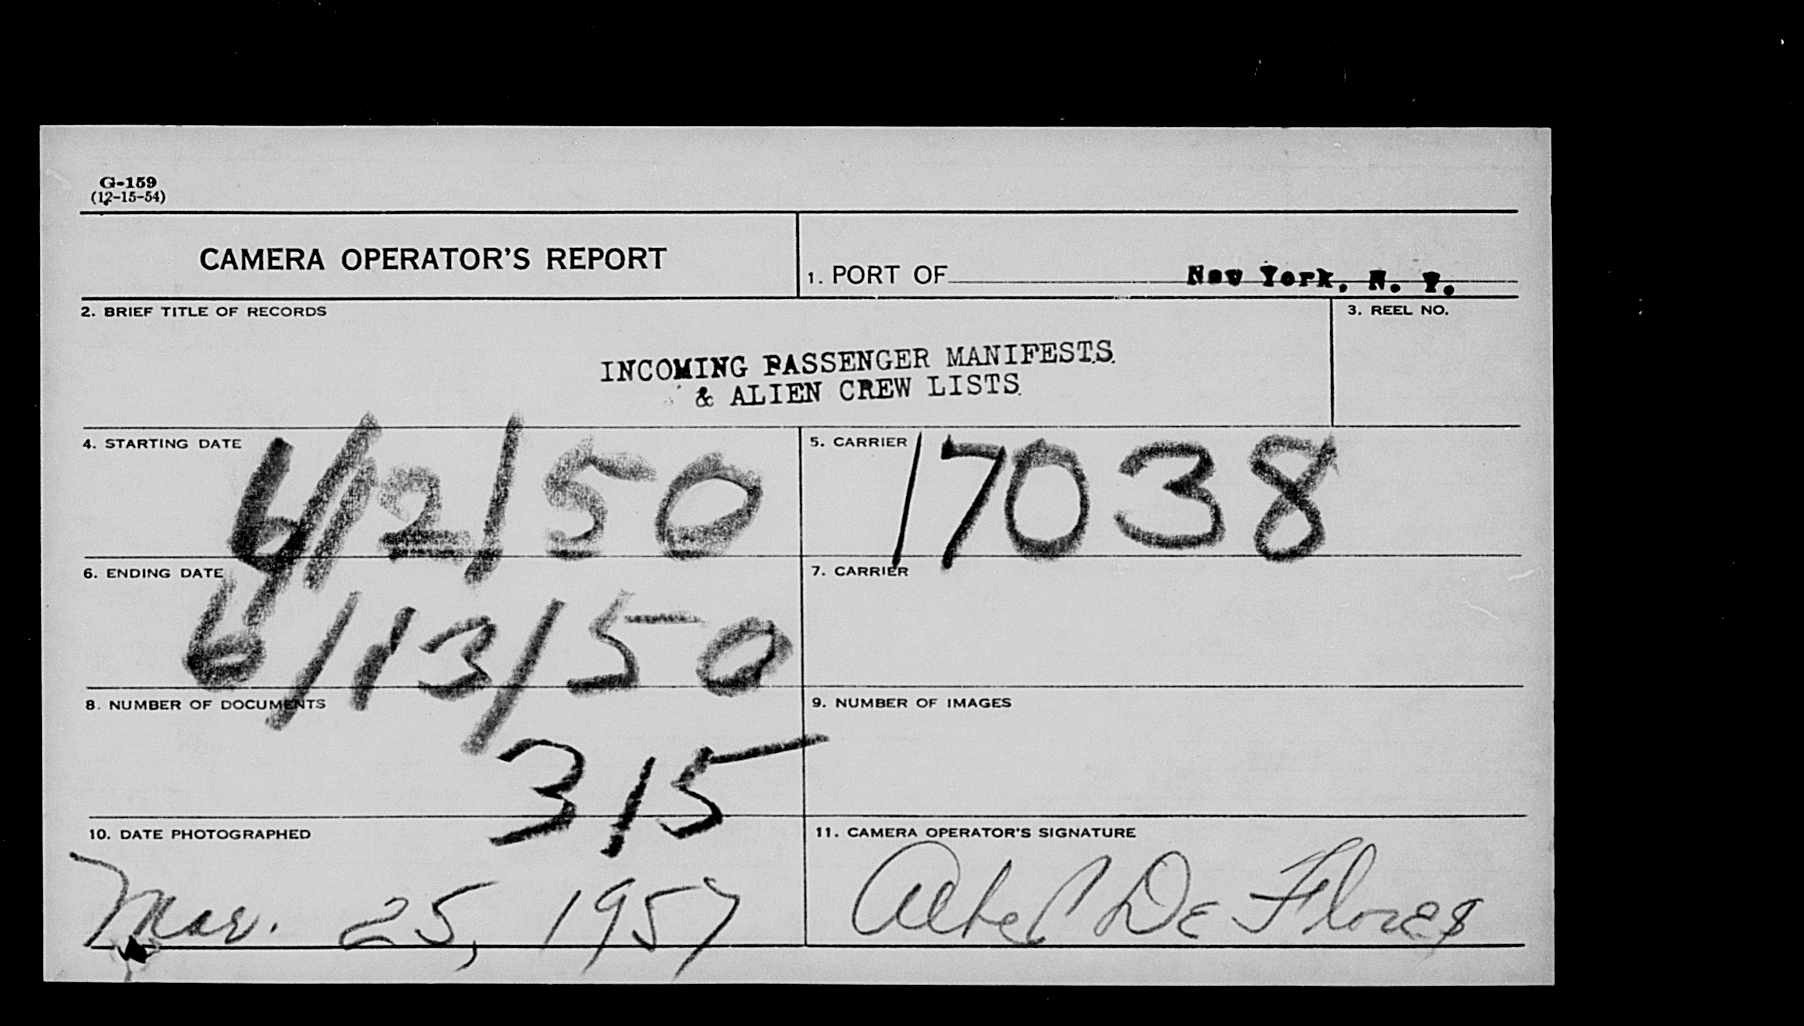 G-159
(12-15-54)
CAMERA OPERATOR'S REPORT
1. PORT OF New York, N. Y.
2. BRIEF TITLE OF RECORDS
3. REEL NO.
INCOMING PASSENGER MANIFESTS.
& ALIEN CREW LISTS.
4. STARTING DATE 6/12/50
5. CARRIER 17038
6. ENDING DATE 6/13/50
7. CARRIER
8. NUMBER OF DOCUMENTS 315
9. NUMBER OF IMAGES
10. DATE PHOTOGRAPHED
11. CAMERA OPERATOR'S SIGNATURE
Mar. 25, 1957
De Flores